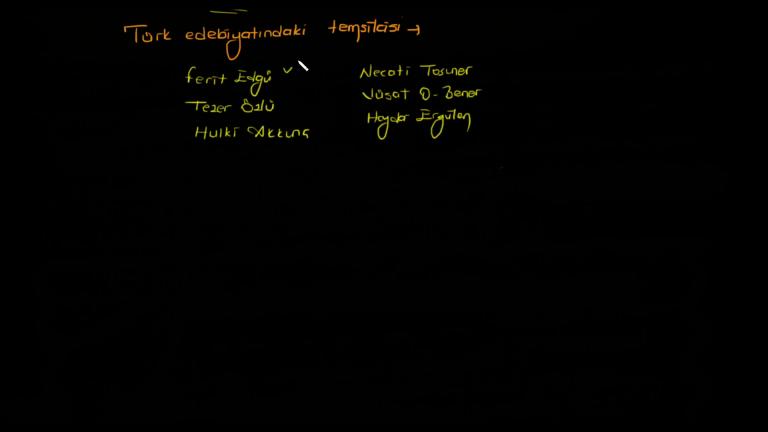 Türk edebiyatındaki temsilcisi →
Ferit Edgü ✓
Tezer Özlü
Hulki Aktunç
Necati Tosuner
Vüsat O. Bener
Haydar Ergülen